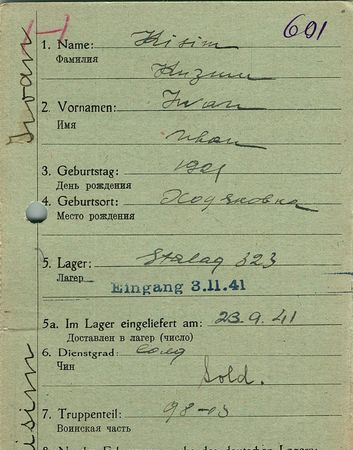 601
Iwan
1. Name: Kisim
Фамилия
Кизим
2. Vornamen: Iwan
Имя
Иван
3. Geburtstag: 1901
День рождения
4. Geburtsort: Ходяковка
Место рождения
5. Lager: Stalag 323
Лагер
Eingang 3.11.41
5a. Im Lager eingeliefert am: 23.9.41
Доставлен в лагер (число)
6. Dienstgrad: солд
Чин
Sold.
7. Truppenteil:
Воинская часть